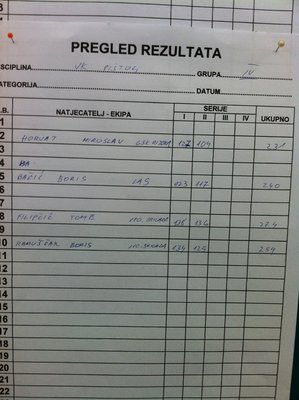 PREGLED REZULTATA
DISCIPLINA VK PIŠTOLJ GRUPA IV
KATEGORIJA DATUM
R.B. NATJECATELJ - EKIPA SERIJE UKUPNO
I II III IV
1
2
3 HORVAT MIROSLAV 127 104 231
4 BA
5 BAČIĆ BORIS 123 117 240
6
7
8 FILIPČIĆ TOMO 138 136 274
9
10 BORIS 134 125 259
11
12
13
14
15
16
17
18
19
20
21
22